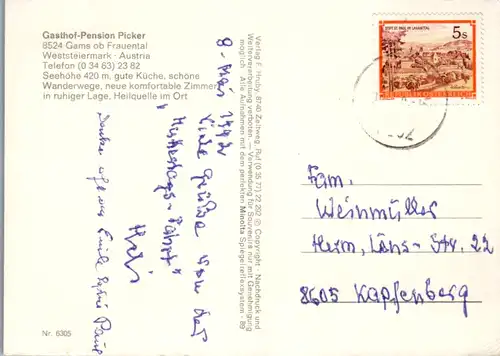 Gasthof-Pension Picker
8524 Gams ob Frauental
Weststeiermark - Austria
Telefon (0 34 63) 23 82
Seehöhe 420 m, gute Küche, schöne
Wanderwege, neue komfortable Zimmer
in ruhiger Lage, Heilquelle im Ort
8. Mai 1992
Viele Grüße von der
"Muttertags-Fahrt"
Verlag F. Hruby, 8740 Zeltweg, Ruf (0 35 77) 22 2 82 © Copyright - Nachdruck und
Weiterverarbeitung verboten. - Verwendung für Souvenirs nur mit Genehmigung
möglich - Alle Aufnahmen mit dem perfekten Minolta Spiegelreflexsystem - 89
5s
REPUBLIK ÖSTERREICH
Fam.
Weinmüller
Herm. Löns-Str. 22
8605 Kapfenberg
Nr. 6305